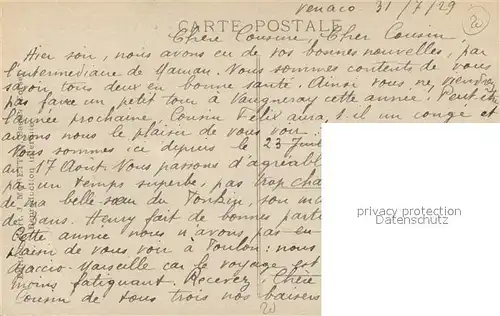 Venaco 31/7/29
CARTE POSTALE
Chère Cousine, Cher Cousin
Hier soir, nous avons eu de vos bonnes nouvelles, par
l'intermediaire de Maman. Nous sommes contents de vous
savoir tous deux en bonne santé. Ainsi vous ne viendrez
pas faire un petit tour à Vaugneray cette année. Peut-être
l'année prochaine, Cousin Felix aura t'il un congé et
aurons nous le plaisir de vous voir.
Nous sommes ici depuis le 23 Juil
au 17 Août. Nous passons d'agréabl
par un temps superbe, pas trop cha
de ma belle sœur du Tonkin, son ma
de ans. Henry fait de bonnes parti
Cette année nous n'avons pas eu
plaisir de vous voir à Toulon: nous
Ajaccio-Marseille car le voyage est
moins fatiguant. Recevez, Chère
Cousin de tous trois nos baisers
privacy protection
watermark